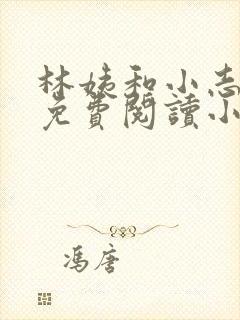 林姨和小志
免費閱讀小
馮唐